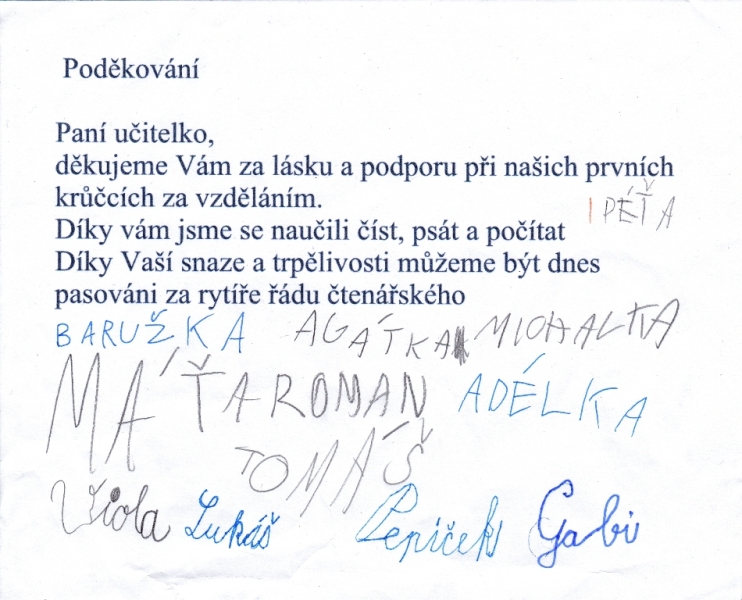 Poděkování
Paní učitelko,
děkujeme Vám za lásku a podporu při našich prvních
krůčcích za vzděláním.
PÉŤA
Díky vám jsme se naučili číst, psát a počítat
Díky Vaší snaze a trpělivosti můžeme být dnes
pasováni za rytíře řádu čtenářského
BARUŽKA AGÁTKA MICHALKA
MÁŤA ROMAN ADÉLKA
TOMÁŠ
Viola Lukáš Pepíček Gabi